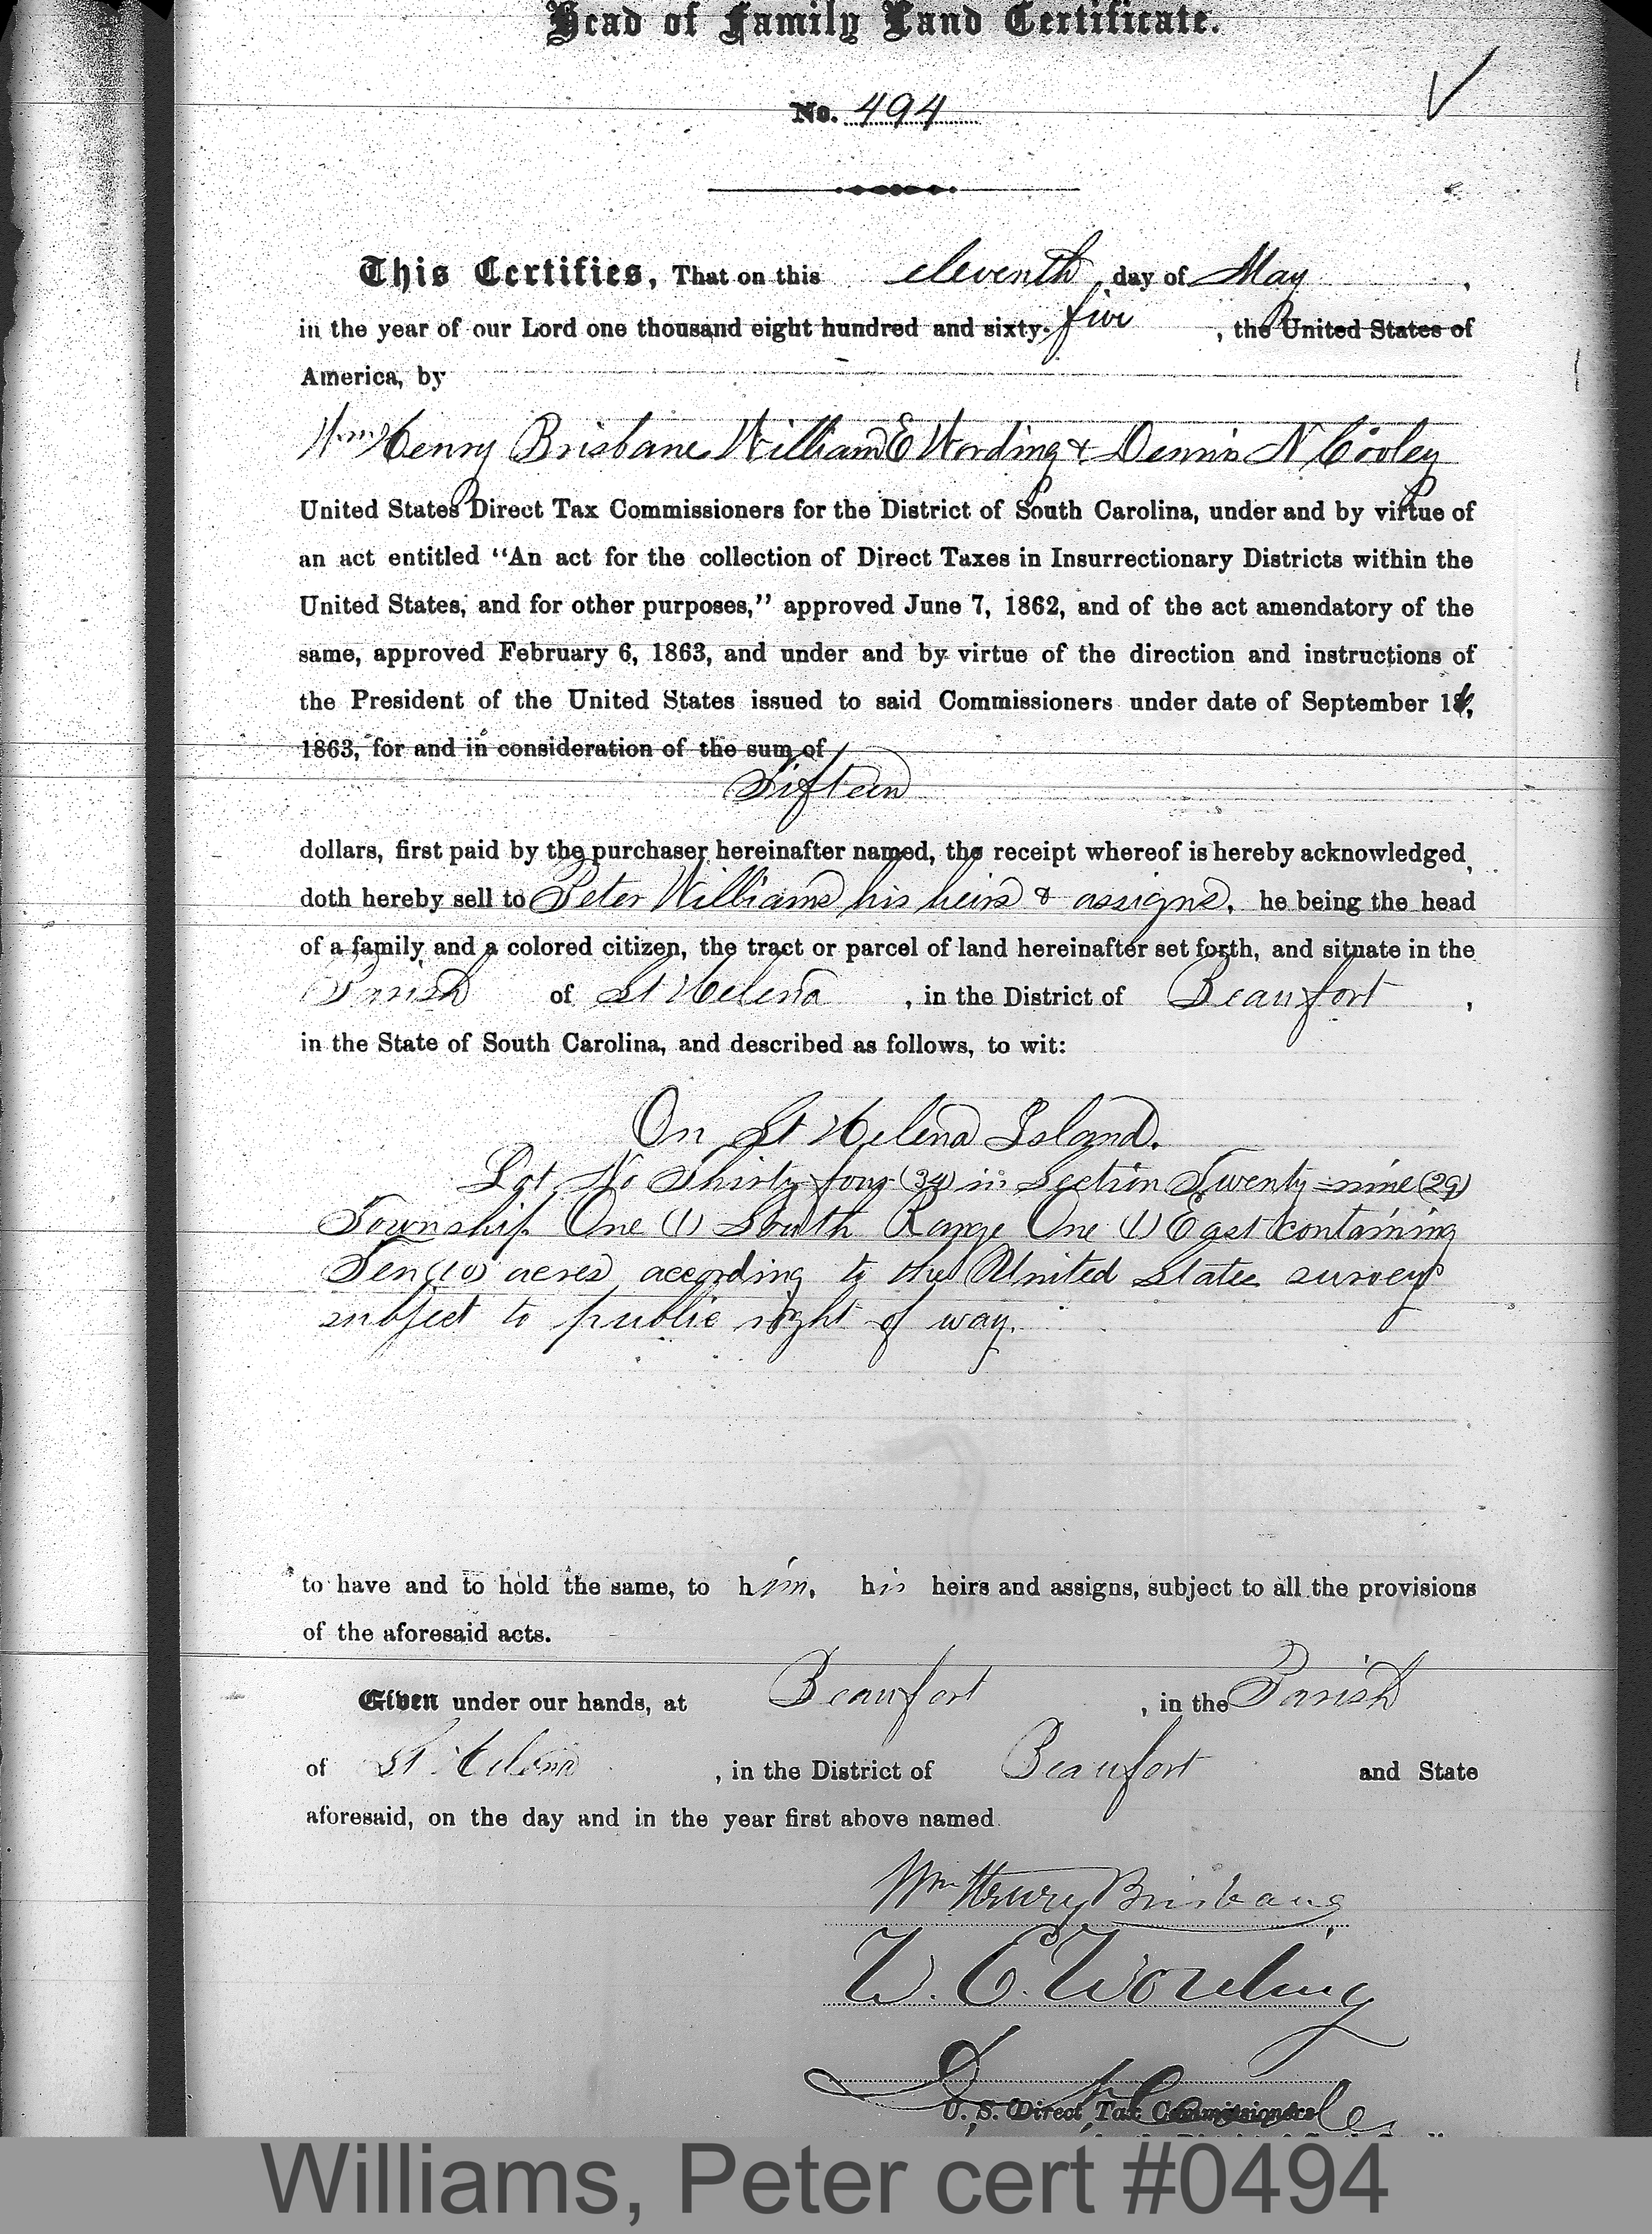 Head of Family Land Certificate.
No. 494
This Certifies, That on this eleventh day of May,
in the year of our Lord one thousand eight hundred and sixty-five, the United States of
America, by
Wm Henry Brisbane William E Wording & Dennis N Cooley
United States Direct Tax Commissioners for the District of South Carolina, under and by virtue of
an act entitled "An act for the collection of Direct Taxes in Insurrectionary Districts within the
United States, and for other purposes," approved June 7, 1862, and of the act amendatory of the
same, approved February 6, 1863, and under and by virtue of the direction and instructions of
the President of the United States issued to said Commissioners under date of September 16,
1863, for and in consideration of the sum of
Fifteen
dollars, first paid by the purchaser hereinafter named, the receipt whereof is hereby acknowledged,
doth hereby sell to Peter Williams his heirs & assigns, he being the head
of a family and a colored citizen, the tract or parcel of land hereinafter set forth, and situate in the
Parish of St Helena, in the District of Beaufort,
in the State of South Carolina, and described as follows, to wit:
On St Helena Island.
Lot No Thirty-four (34) in Section Twenty-nine (29)
Township One (1) South Range One (1) East containing
Ten (10) acres according to the United States surveys
subject to public right of way.
to have and to hold the same, to him, his heirs and assigns, subject to all the provisions
of the aforesaid acts.
Given under our hands, at Beaufort, in the Parish
of St Helena, in the District of Beaufort and State
aforesaid, on the day and in the year first above named.
Wm Henry Brisbane
W. E. Wording
D. N. Cooley
U. S. Direct Tax Commissioners
Williams, Peter cert #0494